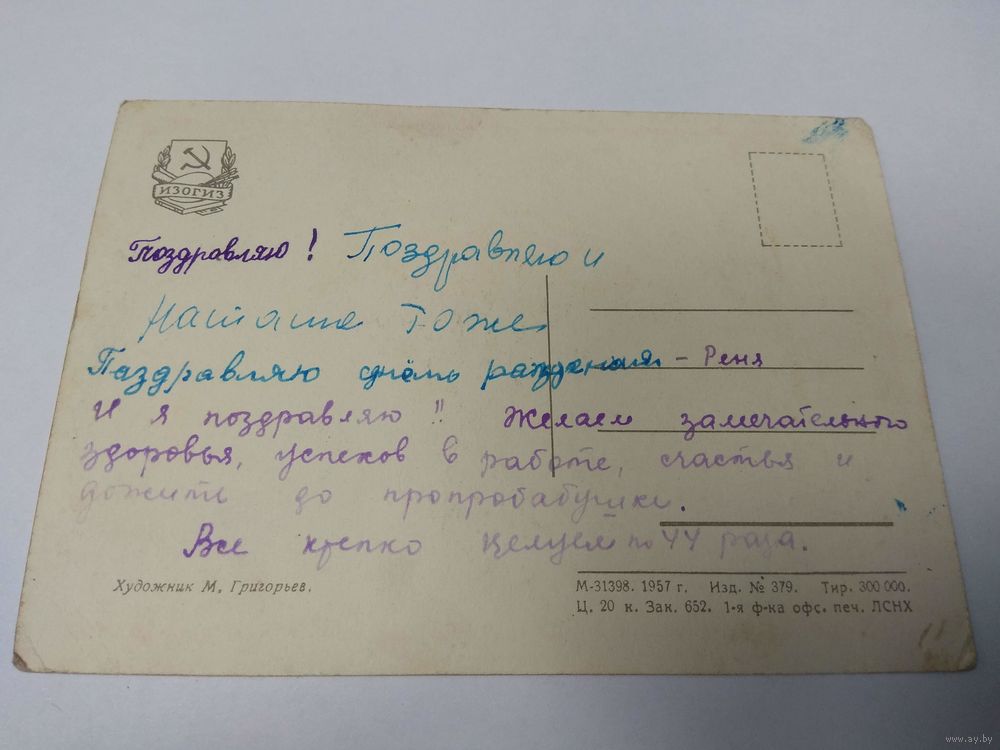 ИЗОГИЗ
Поздравляю! Поздравляю и
Наташа тоже
Паздравляю с днёмь раждения – Реня
И я поздравляю!! Желаем замечательного
здоровья, успехов в работе, счастья и
дожить до пропробабушки.
Все крепко целуем по 44 раза.
Художник М. Григорьев.
М-31398. 1957 г. Изд. № 379. Тир. 300 000.
Ц. 20 к. Зак. 652. 1-я ф-ка офс. печ. ЛСНХ
www.ay.by